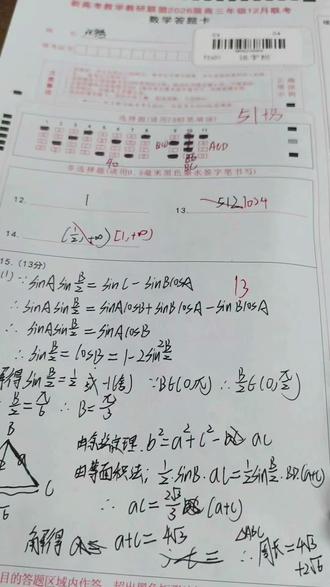 新高考教学教研联盟2026届高三年级12月联考
数学答题卡
选择题(请用2B铅笔填涂)
51+13
40
BCD
ACD
非选择题(请用0.5毫米黑色墨水签字笔书写)
12. 1
13. 512 1024
14. (1/2,+∞) [1,+∞)
15. (13分)
13
(1) ∵ sinA sin B/2 = sinC - sinBcosA
∴ sinA sin B/2 = sinAcosB + sinBcosA - sinBcosA
∴ sinA sin B/2 = sinA cosB
∴ sin B/2 = cosB = 1-2sin² B/2
解得 sin B/2 = 1/2 或 -1(舍) ∵B∈(0,π) ∴ B/2∈(0,π/2)
∴ B/2 = π/6 ∴ B = π/3
B
C
由余弦定理, b² = a² + c² - ac
由等面积法; 1/2 · sinB · ac = 1/2 sin B/2 · BD · (a+c)
∴ ac = 2√3/3 (a+c)
解得 a+c = 4√3
∴ △ABC 周长 = 4√3 + 2√6